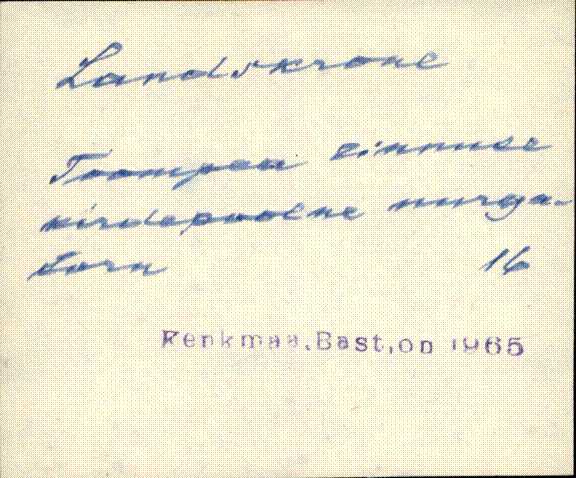 Landskrone
Toompea linnuse
kirdepoolne nurga-
torn 16
Renkmaa.Bastion 1965